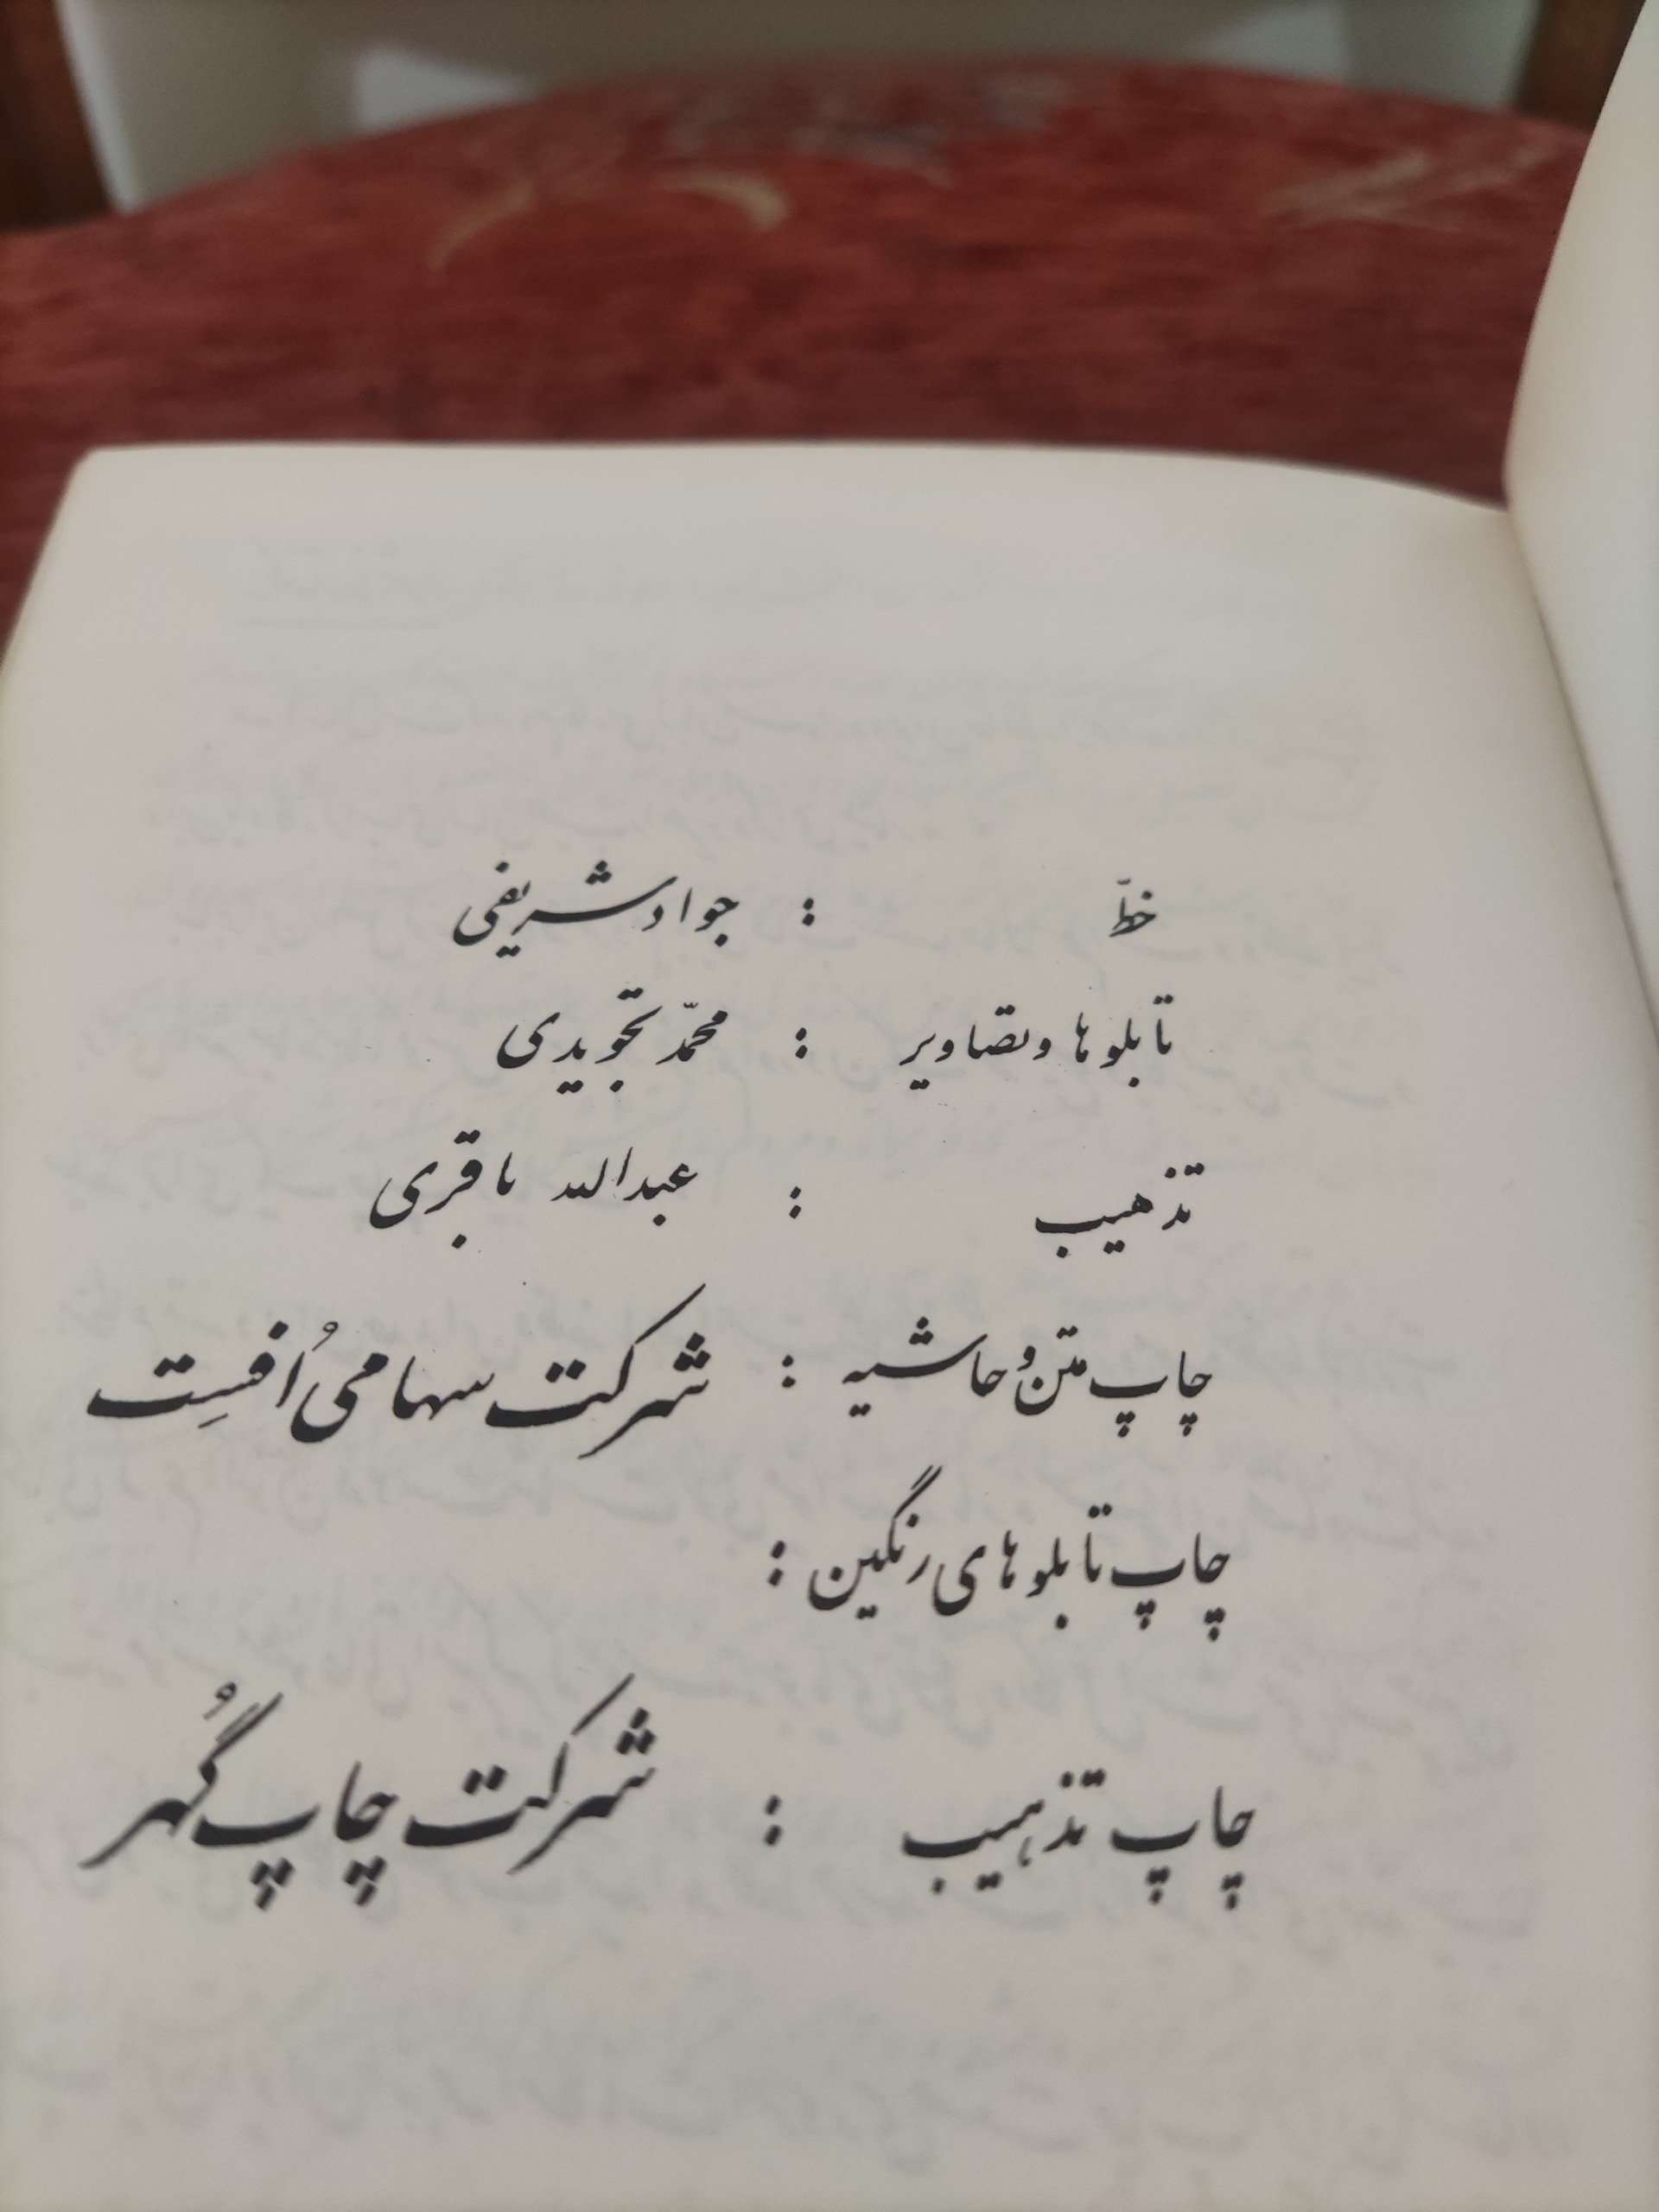 خطّ : جواد شریفی
تابلوها و تصاویر : محمّد تجویدی
تذهیب : عبدالله باقری
چاپ متن و حاشیه : شرکت سهامی اُفسِت
چاپ تابلوهای رنگین :
چاپ تذهیب : شرکت چاپ گُهر